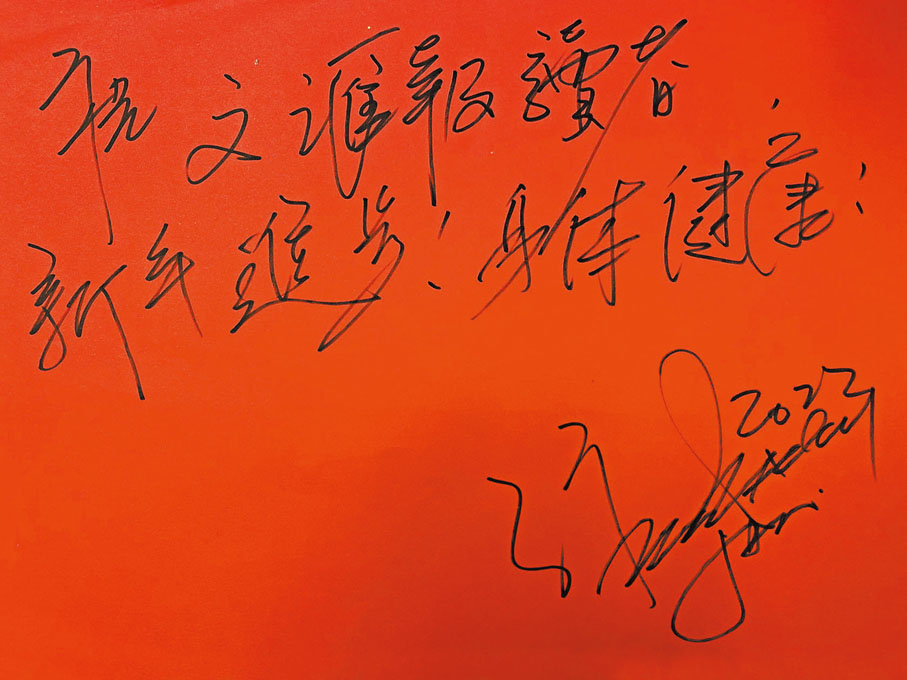 祝文滙報讀者
新年進步！身体健康！
2022